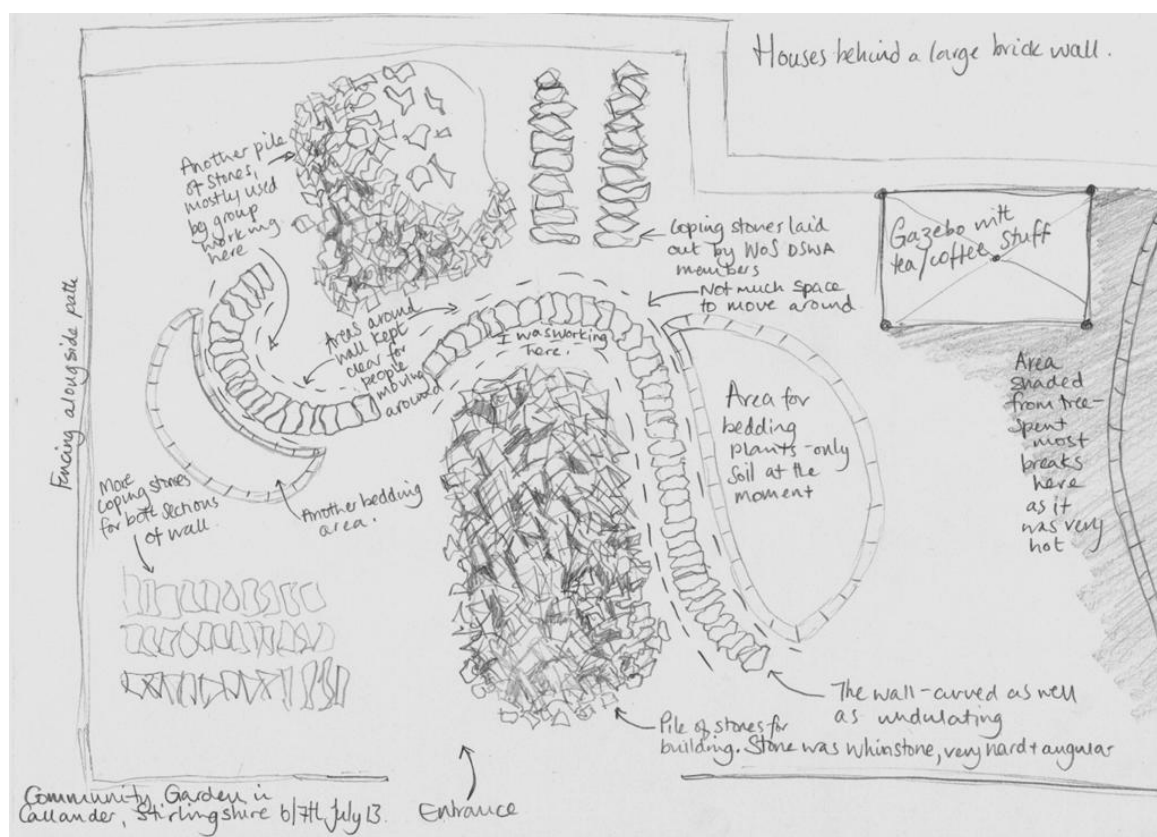 Houses behind a large brick wall.
Another pile
of stones,
mostly used
by group
working
here
Coping stones laid
out by WoS DSWA
members
Not much space
to move around
Gazebo with
tea/coffee stuff
Fencing alongside path
Areas around
wall kept
clear for
people
moving
around
I was working
here.
Area for
bedding
plants - only
soil at the
moment
Area
shaded
from tree -
spent
most
breaks
here
as it
was very
hot
More
coping stones
for both sections
of wall.
Another bedding
area.
The wall - curved as well
as undulating
Pile of stones for
building. Stone was whinstone, very hard + angular
Community Garden in
Callander, Stirlingshire 6/7th July 13.
Entrance